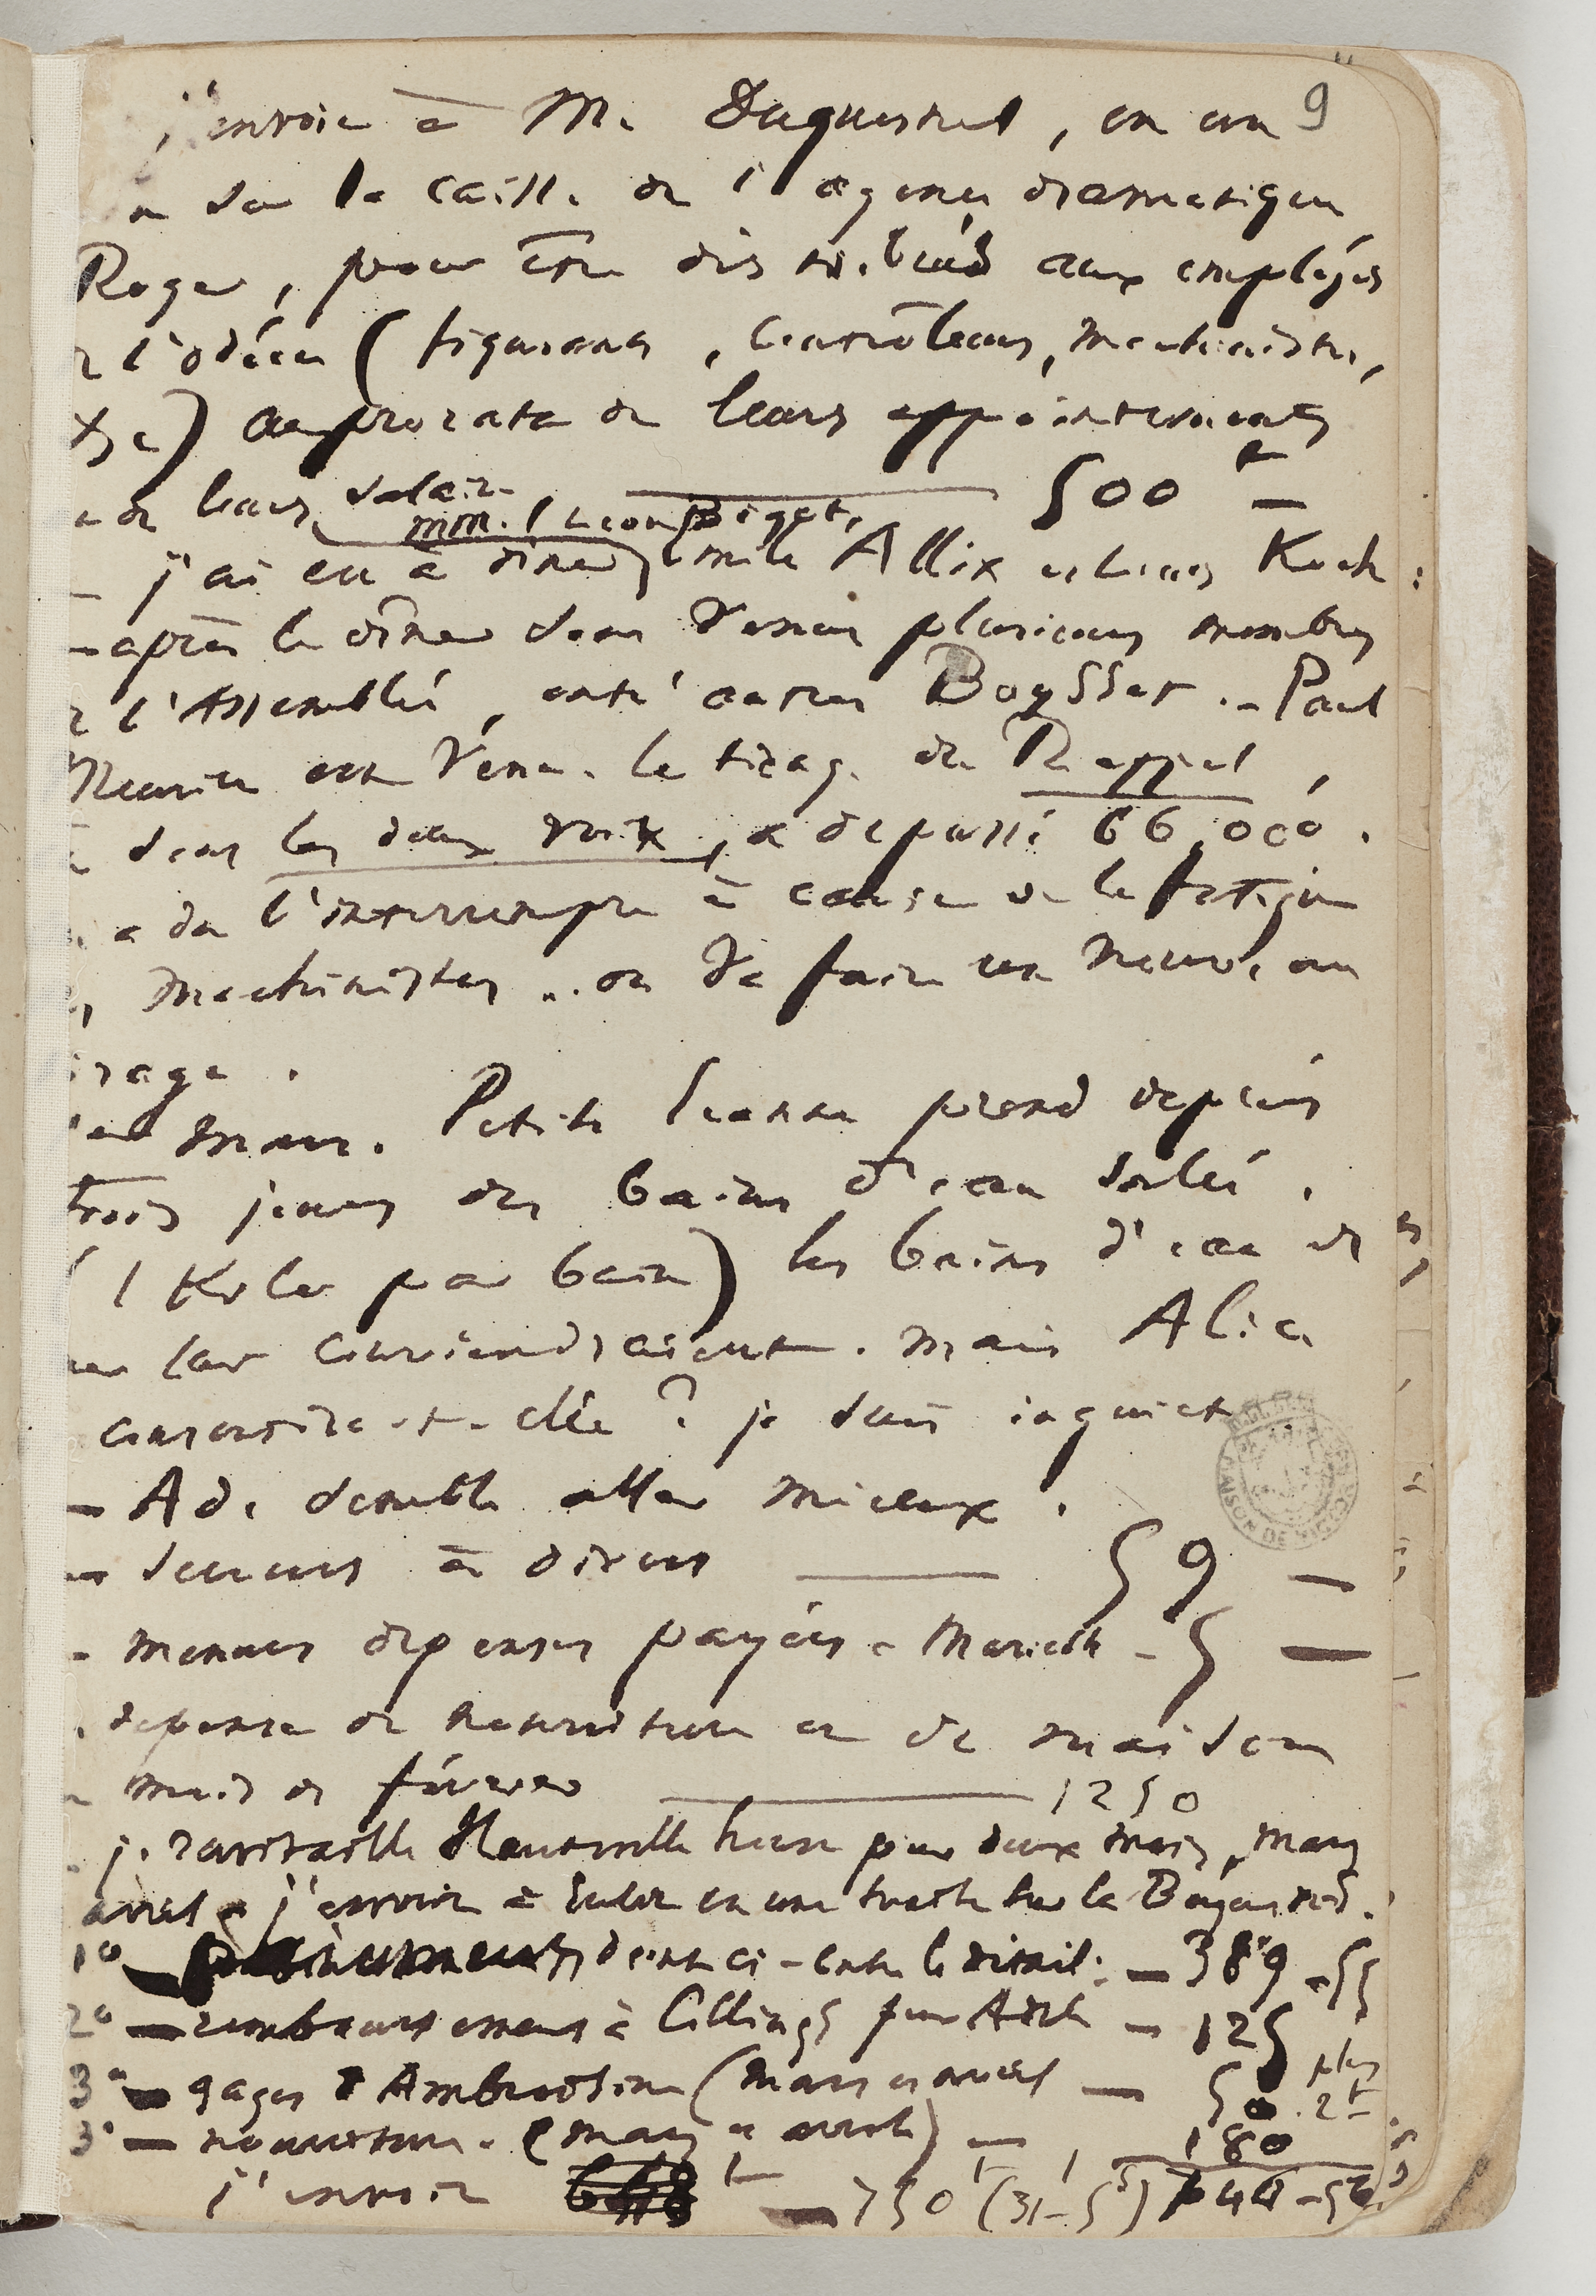 9
j'envoie à M. Duquesnel, en un
n sur la caisse de l'agence dramatique
Roger, pour être distribués aux employés
l'odéon (figurans, contrôleurs, machinistes,
&c) au prorata de leurs appointements
de leurs salaires — 500 f —
MM. Léon Bigot,
— j'ai eu à dîner Émile Allix et Louis Koch :
— après le dîner sont venus plusieurs membres
l'Assemblée, entr'autres Boysset. — Paul
Meurice est venu. le tirage du Rappel,
sont les deux voix, a dépassé 66,000.
a dû l'interrompre à cause de la fatigue
machinistes... on va faire un nouveau
irage.
mars. Petite Jeanne prend depuis
trois jours des bains d'eau salée.
(1 Kilo par bain) les bains d'eau de
mer lui conviendraient. mais Alice
consentira-t-elle ? je suis inquiet.
— Ad. semble aller mieux.
— secours à divers — 59 —
— menues dépenses payées à Mariette — 5 —
dépense de nourriture et de maison
mois de février — 1250
j. ravitaille Hauteville house pour deux mois, mars
avril — j'envoie à Julie en une traite sur la
1° — dont ci-contre le détail : — 389 - 55
2° — remboursement à Collings pour Adèle — 125
3° — gages d'Ambroisine (mars et avril — 50. plus 2 f
3° — nourriture. (mars et avril) — 180
j'envoie — 750 f (31 - 5 s) 744 - 5
MAISON DE VICTOR